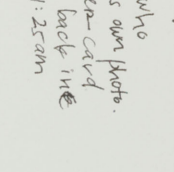 who
s own photo.
card
back in
1:25am